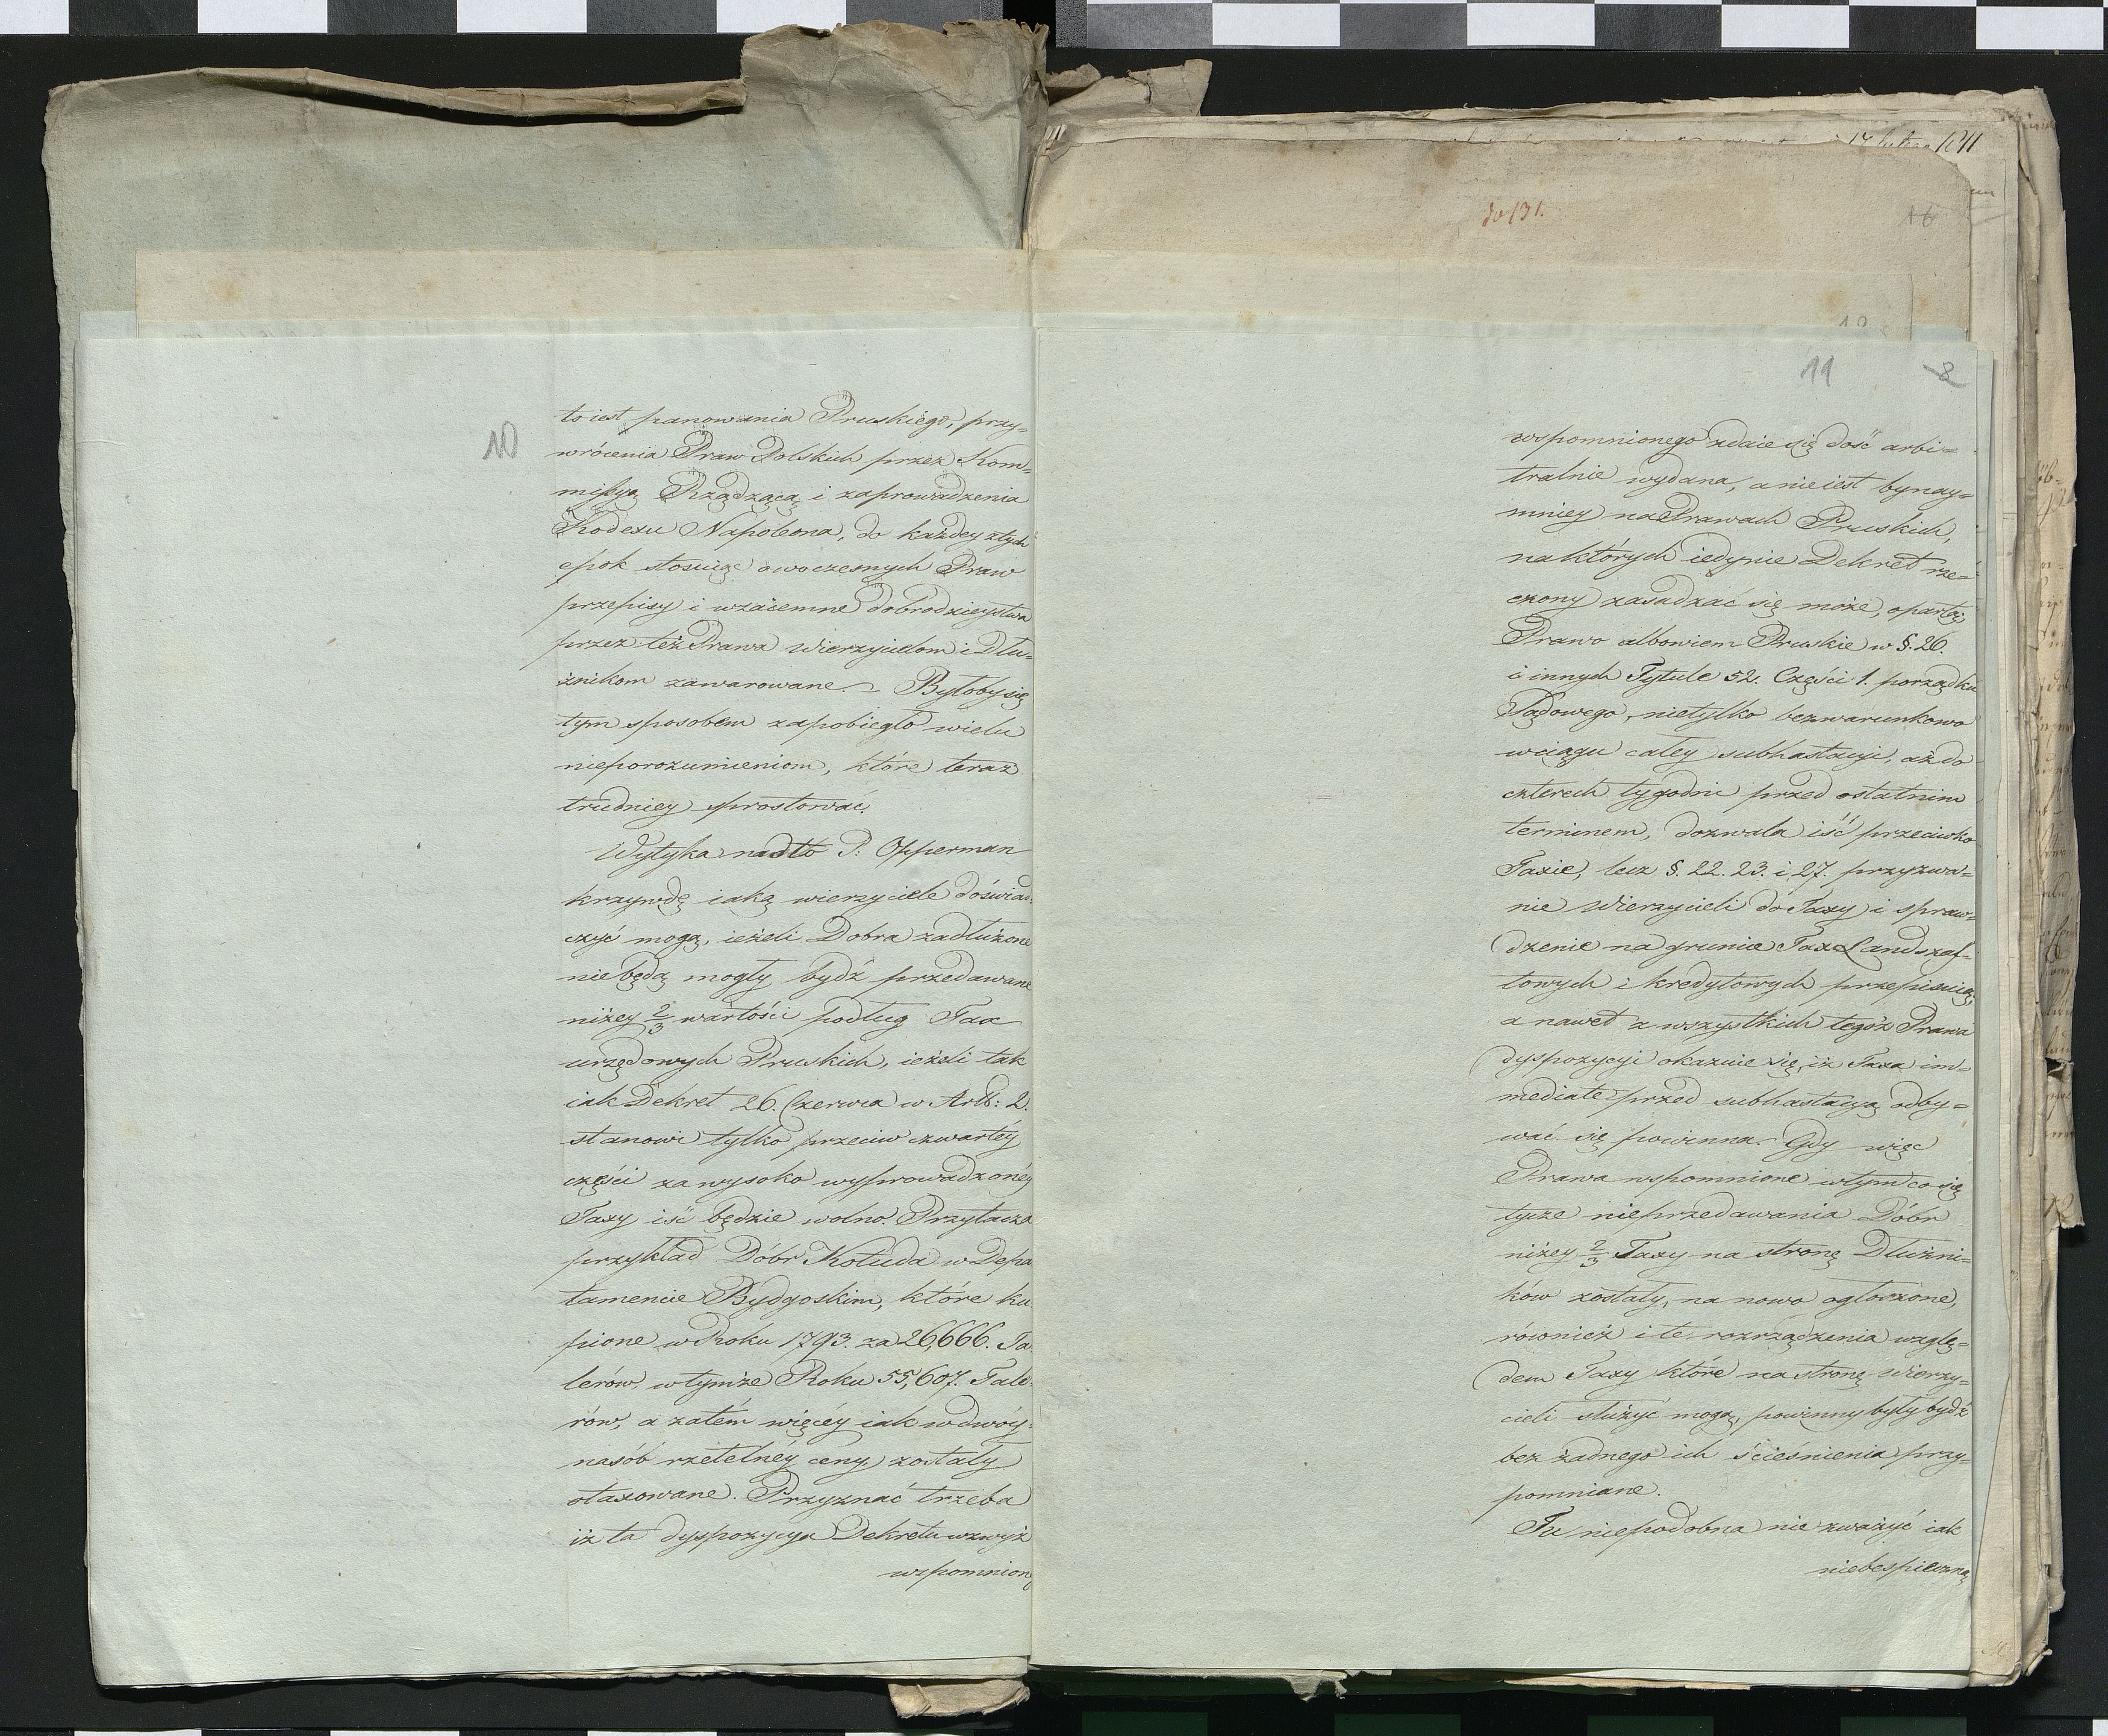 10
to iest panowania Pruskiego, przy=
wrócenia Praw Polskich przez Kom=
missyą Rządzącą i zaprowadzenia
Kodexu Napoleona, do każdey z tych
epok stosuiąc owoczesnych Praw
przepisy i wzaiemne dobrodzieystwa
przez też Prawa Wierzycielom i Dłu=
żnikom zawarowane. – Byłoby się
tym sposobem zapobiegło wielu
nieporozumieniom, które teraz
trudniey prostować.
Wytyka nadto P: Opperman
krzywdę iaką wierzyciele doświad=
czyć mogą, ieżeli Dobra zadłużone
nie będą mogły bydź przedawane
niżey 2/3 wartości podług Tax
urzędowych Pruskich, ieżeli tak
iak Dekret 26. Czerwca w Artt: 2.
stanowi tylko przeciw czwartéy
części za wysoko wyprowadzonéy
Taxy iść będzie wolno. Przytacza
przykład Dóbr Kołuda w Depa
tamencie Bydgoskim, które ku
pione w Roku 1793. za 26,666. Ta
lerów, w tymże Roku 55,607. Tale
rów, a zatém więcéy iak w dwóy
nasób rzetelnéy ceny zostały
otaxowane. Przyznać trzeba
iż ta dyspozycya Dekretu wzwyż
wspomniong
14 Lutego 1811
do 131.
16
10
11
8
wspomnionego zdaie się dość arbi=
tralnie wydana, a nie iest bynay=
mniey na Prawach Pruskich,
na których iedynie Dekret rze=
czony zasadzać się może, opartą;
Prawo albowiem Pruskie w §. 26.
i innych Tytule 52. Części 1. porządku
Sądowego, nietylko bezwarunkowo
w ciągu całey subhastacyi, aż do
czterech tygodni przed ostatnim
terminem, dozwala iść przeciwko
Taxie, lecz §. 22. 23. i 27. przyzwa=
nie Wierzycieli do Taxy i spraw=
dzenie na gruncie Tax Landszaf=
towych i kredytowych przepisuią,
a nawet z wszystkich tegoż Prawa
dyspozycyi okazuie się, iż Taxa im=
mediate przed subhastacyą odby=
wać się powinna. – Gdy więc
Prawa wspomnione w tym co się
tycze nieprzedawania Dóbr
niżey 2/3 Taxy na stronę Dłużni=
ków zostały, na nowo ogłoszone,
również i te rozrządzenia wzglę=
dem Taxy które na stronę Wierzy=
cieli służyć mogą, powinny były bydź
bez żadnego ich ścieśnienia przy=
pomniane.
Tu niepodobna nie zważyć iak
niebespieczną